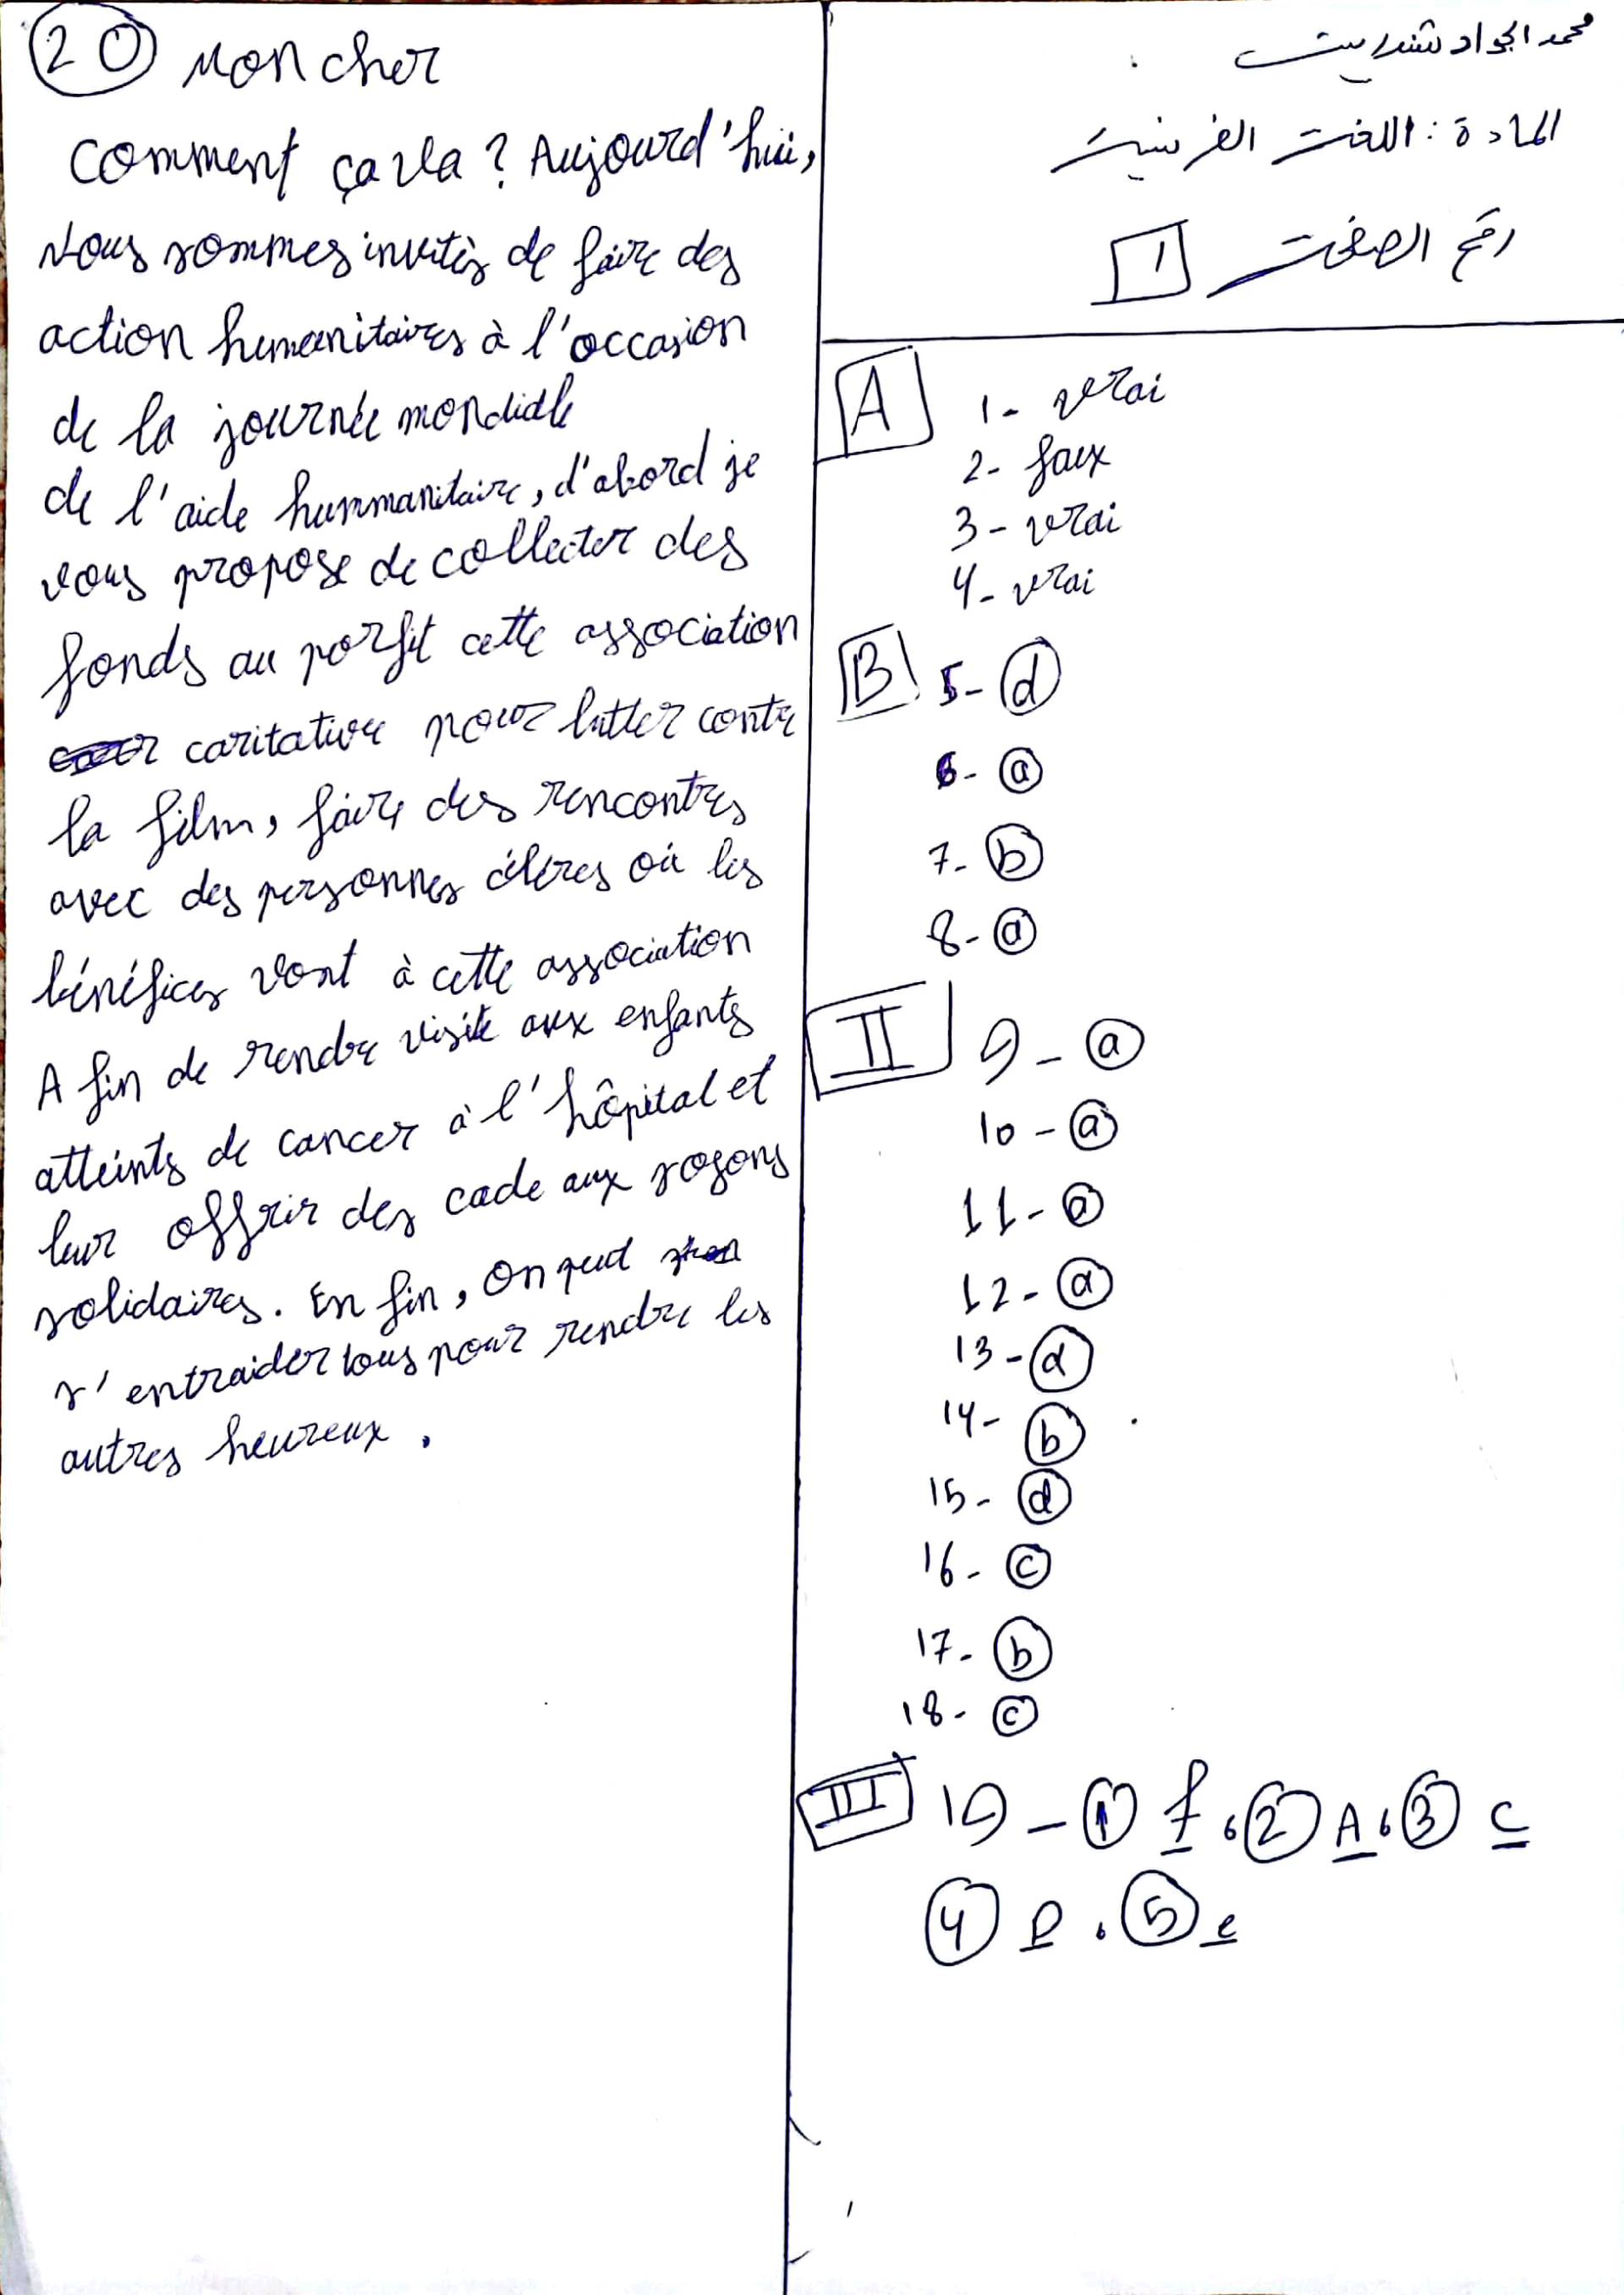 محمد الجواد شندريت
المادة: اللغت الفرنسيت
رقم الصفحت 1
A 1- vrai
2- faux
3- vrai
4- vrai
B 5- d
6- a
7- b
8- a
II 9- a
10- a
11- a
12- a
13- d
14- b
15- d
16- c
17- b
18- c
III 19- 1 f, 2 A, 3 c
4 D, 5 e
20 Mon cher
Comment ça va? Aujourd'hui,
Nous sommes invités de faire des
action humanitaires à l'occasion
de la journée mondiale
de l'aide hummanitaire, d'abord je
vous propose de collecter des
fonds au porfit cette association
caritative pour lutter contre
la film, faire des rencontres
avec des personnes célères où les
bénéfices vont à cette association
A fin de rendre visite aux enfants
atteints de cancer à l'hôpital et
leur offrir des cade aux soyons
solidaires. En fin, on peut
s'entraider tous pour rendre les
autres heureux.